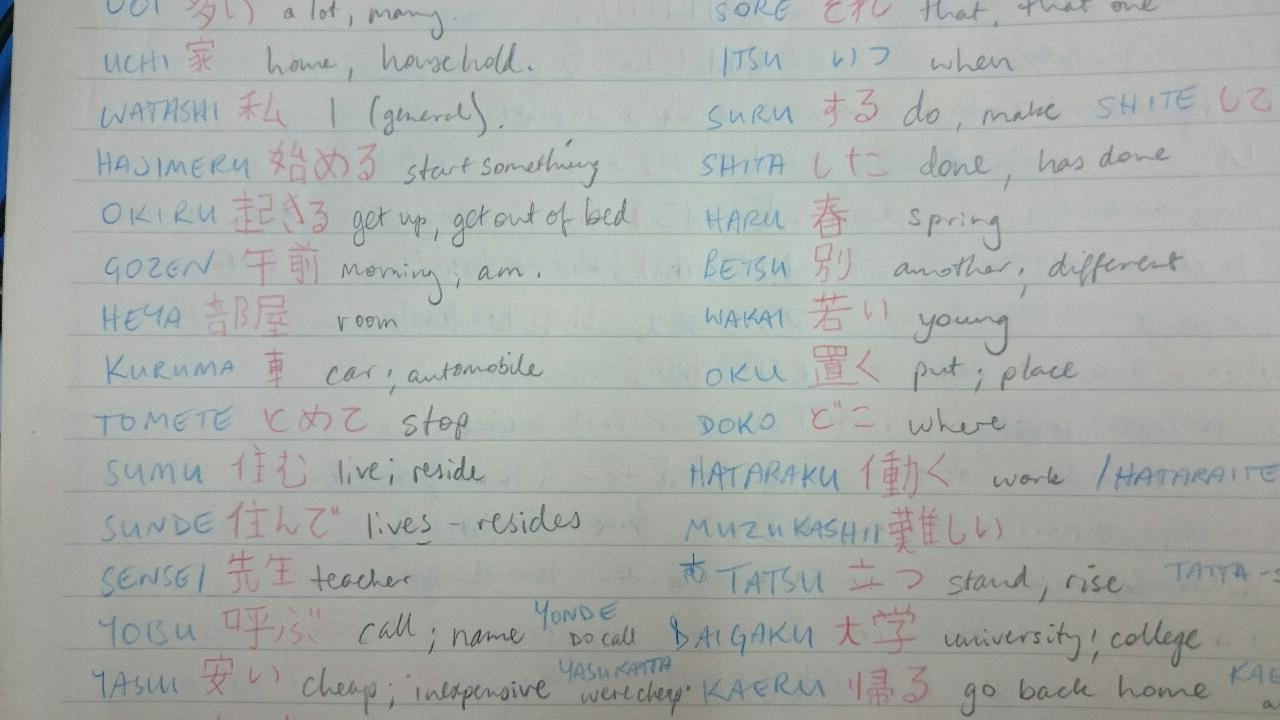 OOI 多い a lot, many.
UCHI 家 home, household.
WATASHI 私 I (general).
HAJIMERU 始める start something
OKIRU 起きる get up, get out of bed
GOZEN 午前 morning; am.
HEYA 部屋 room
KURUMA 車 car; automobile
TOMETE とめて stop
SUMU 住む live; reside
SUNDE 住んで lives - resides
SENSEI 先生 teacher
YOBU 呼ぶ call; name YONDE DO call
YASUI 安い cheap; inexpensive YASUKATTA were cheap.
SORE それ that, that one
ITSU いつ when
SURU する do, make SHITE して
SHITA した done, has done
HARU 春 spring
BETSU 別 another; different
WAKAI 若い young
OKU 置く put; place
DOKO どこ where
HATARAKU 働く work / HATARAITE
MUZUKASHII 難しい
TATSU 立つ stand, rise
DAIGAKU 大学 university; college
KAERU 帰る go back home KAE